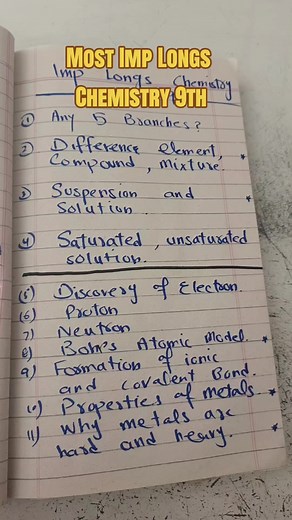 Most Imp Longs
Chemistry 9th
Imp Longs Chemistry
① Any 5 Branches?
② Difference element, *
Compound, mixture.
③ Suspension and *
Solution.
④ Saturated, unsaturated
solution.
(5) Discovery of Electron.
(6) Proton
7) Neutron
8) Bohr's Atomic Model.
9) Formation of ionic
and covalent Bond.
10) Properties of metals. *
11) Why metals are
hard and heavy. *